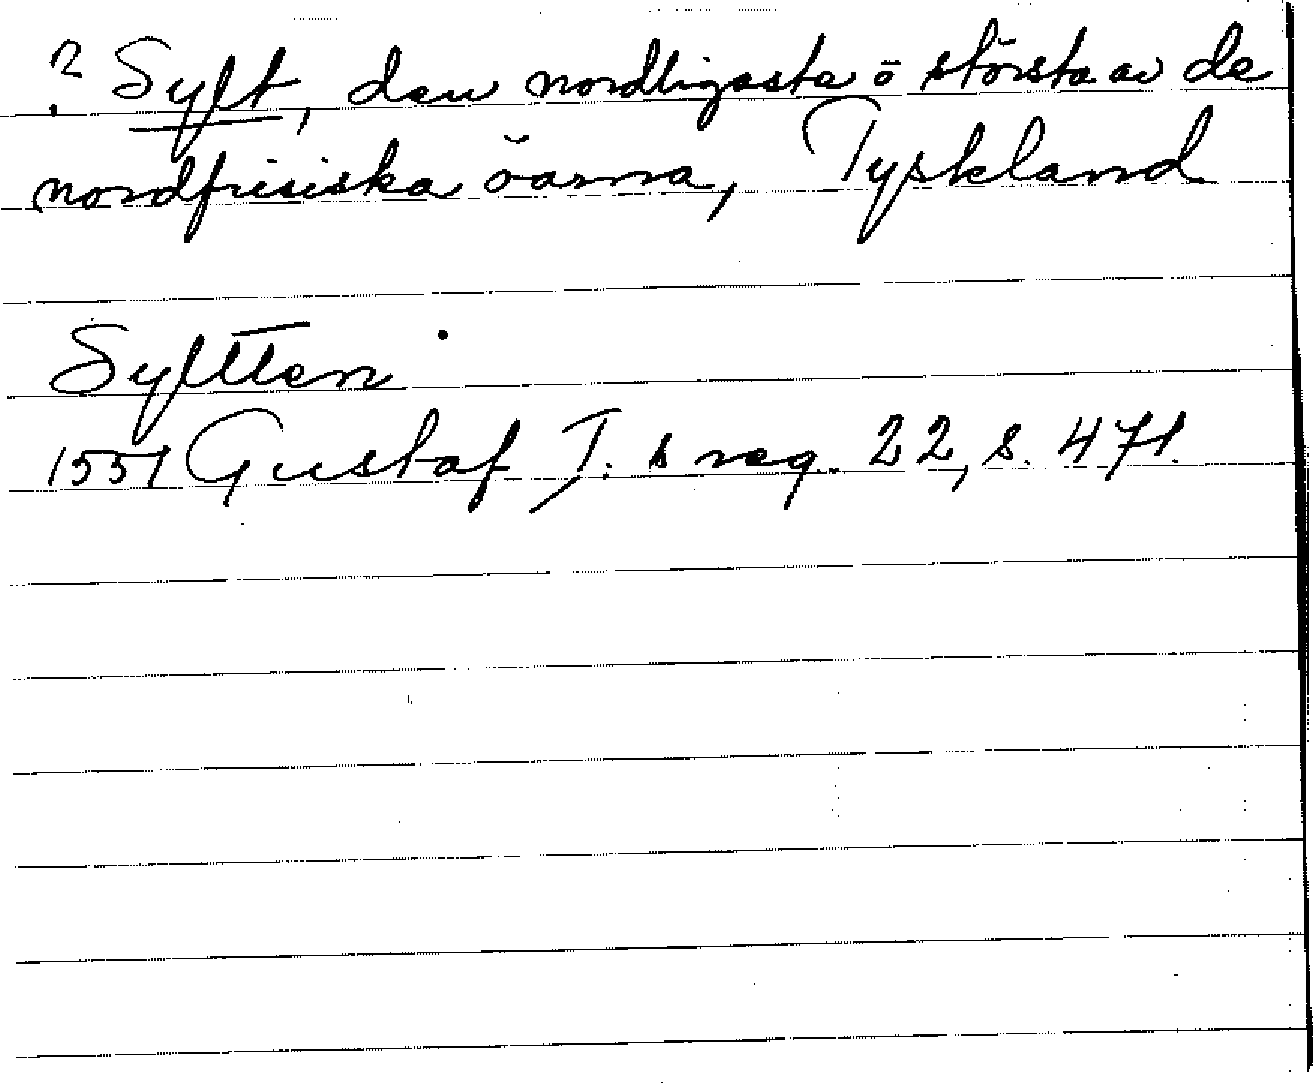 ? Sylt, den nordligaste o största av de
nordfrisiska öarna, Tyskland
Syltten
1551 Gustaf I:s reg. 22, s. 471.